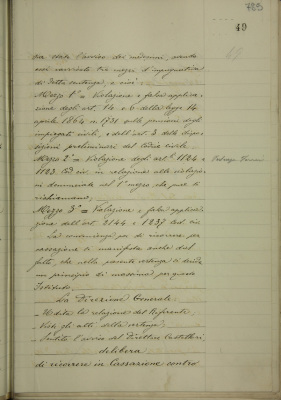 789
49
essi scarsite tre mezzi d'impugnativa
di detta sentenza, e cioè:
Mezzo 1° = Violazione e falsa applica-
zione degli art. 14 e 6 della legge 14
aprile 1864 n 1731 sulle pensioni degli
impiegati civili, e dell'art. 3 delle dispo-
sizioni preliminari del Codice civile.
Mezzo 2° = Violazione degli art.i 1124 e
1123 Cod. civ. in relazione alle violazio-
ni denunciate col 1° mezzo che qui si
richiamano;
Mezzo 3° = Violazione e falsa applica-
zione dell'art. 2144 e 1237 Cod. civ.
La convenienza poi di ricorrere per
cassazione si manifesta anche dal
fatto, che nella parente sentenza si decide
un principio di massima per questo
Istituto.
La Direzione Generale
- Udita la relazione del Riferente
- Visti gli atti della vertenza;
- Sentito l'avviso del Direttore
delibera
di ricorrere in Cassazione contro